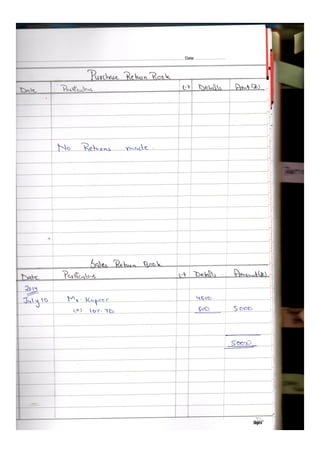 Date
Purchase Return Book
Date Particulars Details Amt(₹)
No Returns made.
Sales Return Book
Date Particulars Details Amount(₹)
2019
July 10 Mr. Kapoor
5000
5000